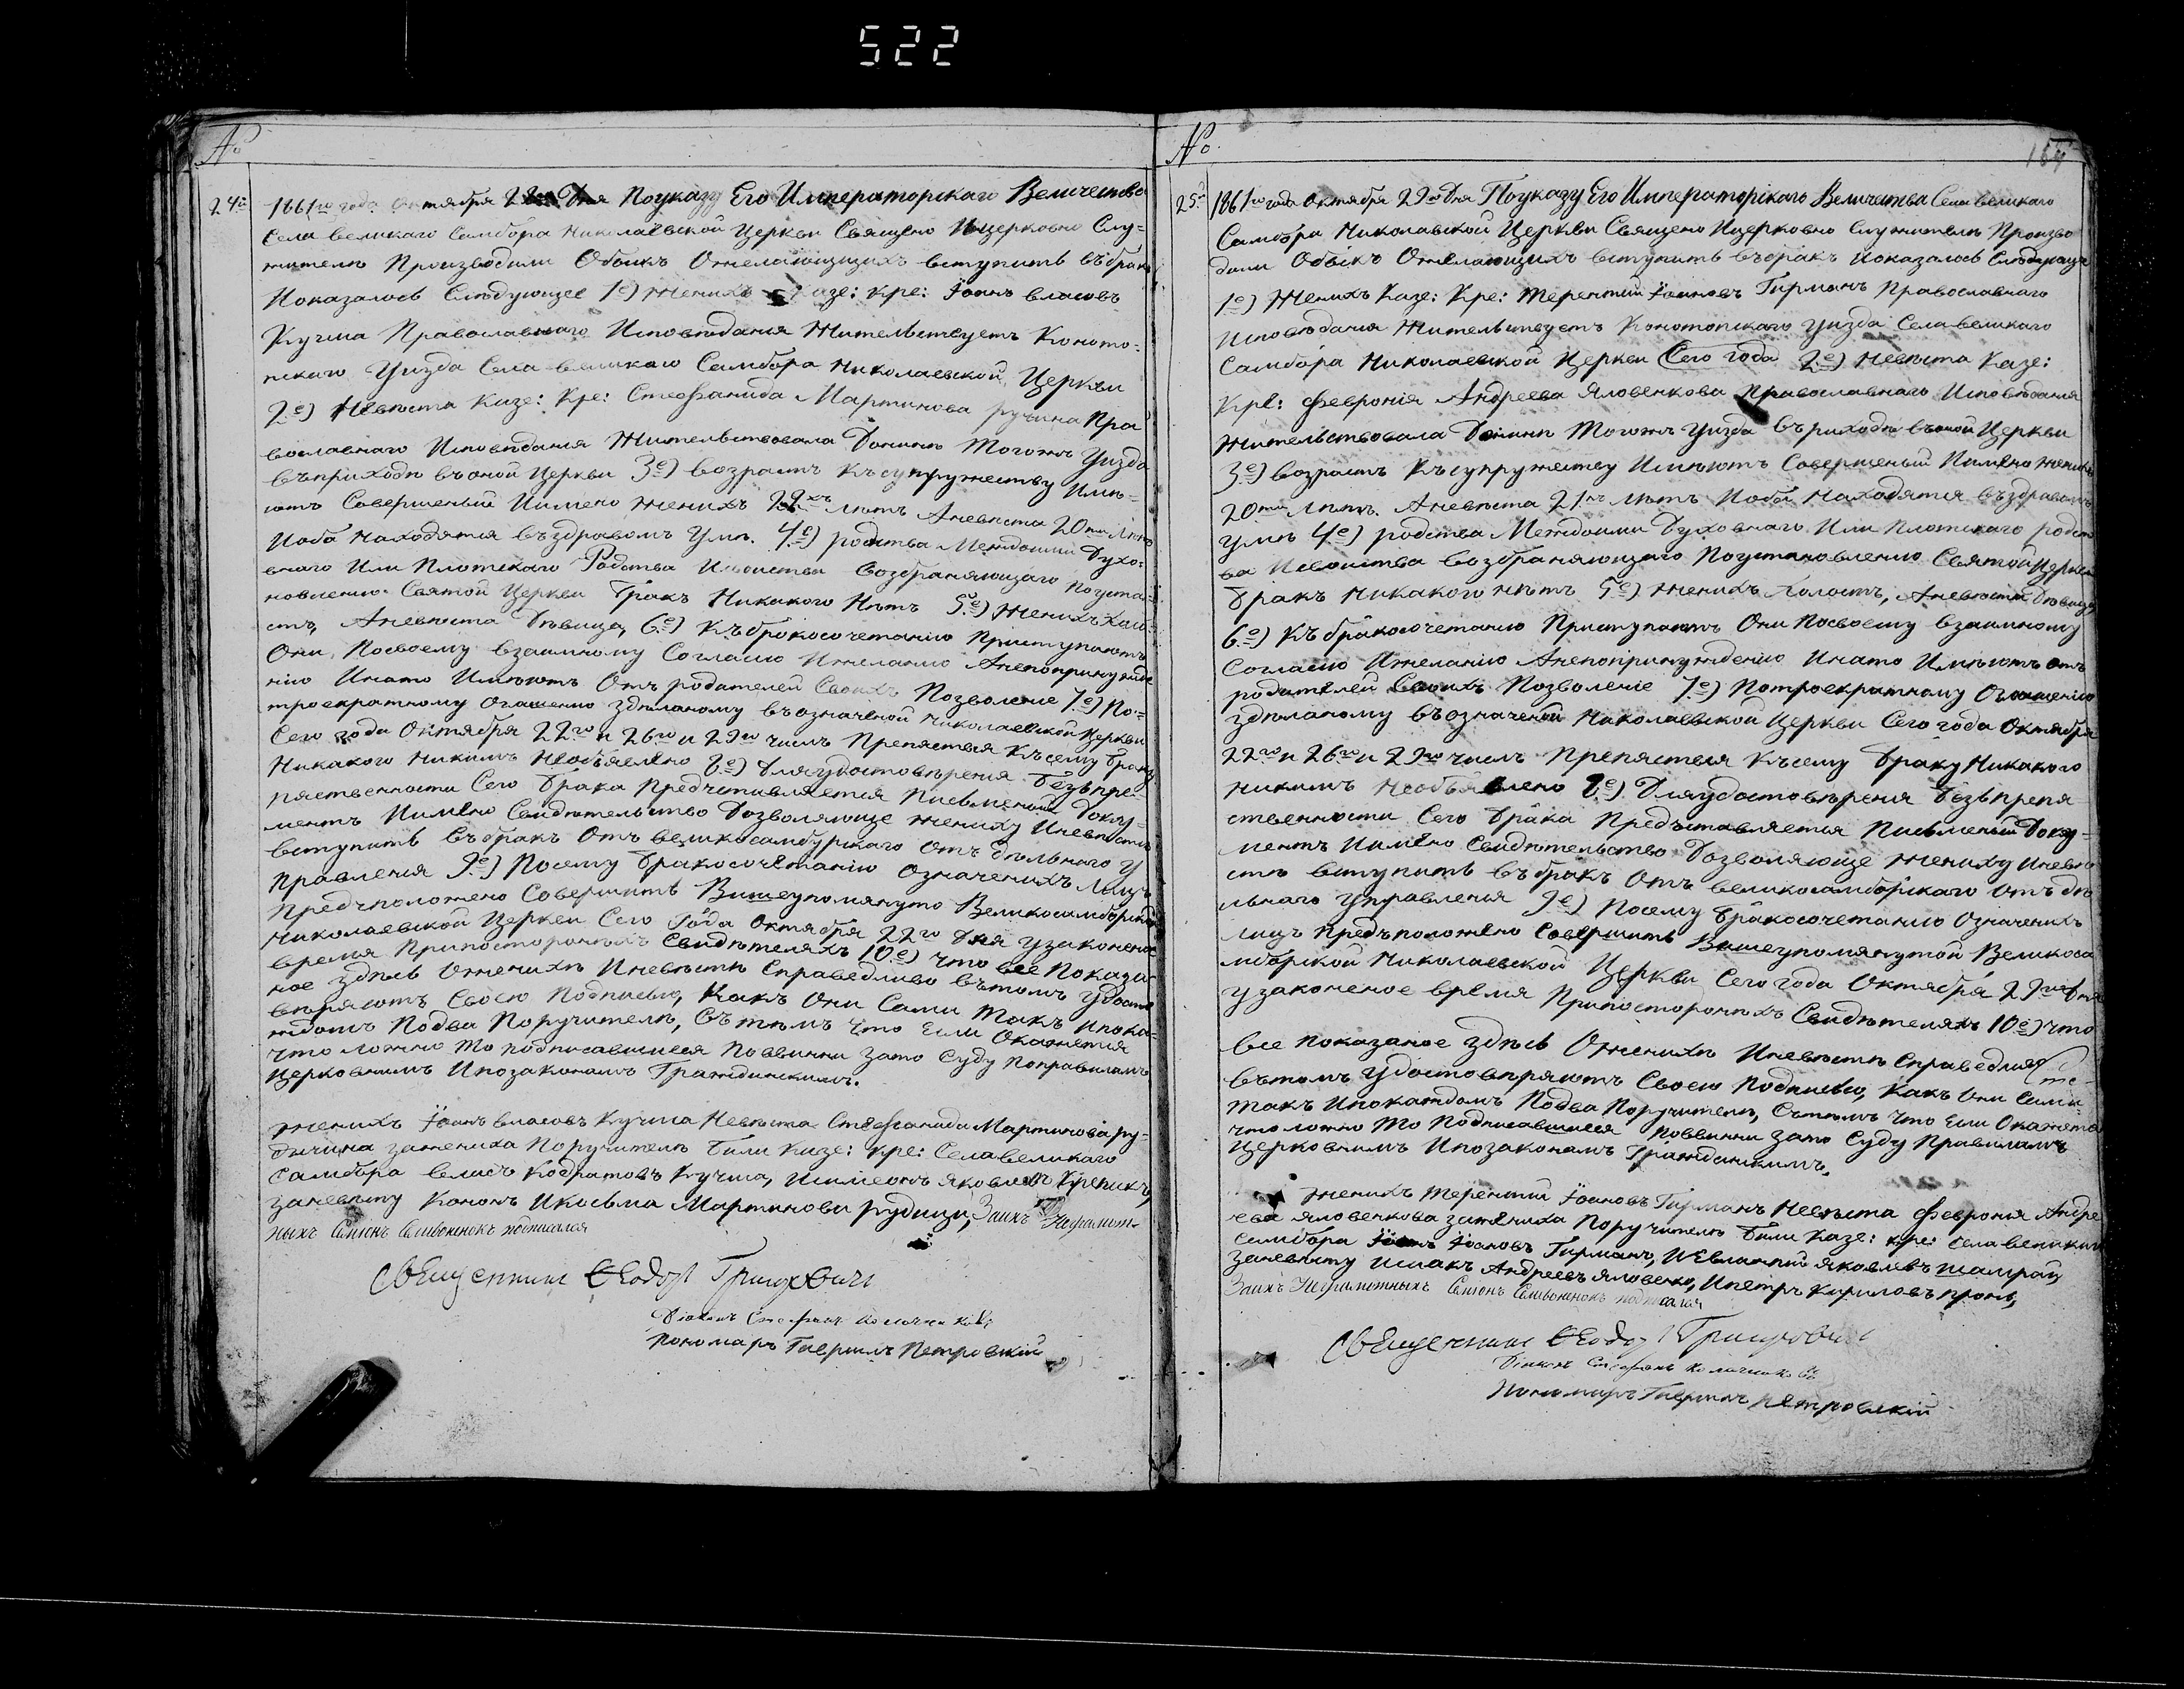 522
№
24е
1861го года Октября Дня Поуказу Его Императорскаго Величества
Села великаго Самбора Николаевской Церкви Священо Ицерковно Слу-
жители Производили Обыскъ Ожелающихъ вступить въбракъ
Иоказалось Следующее 1е) Женихъ Казе: Кре: Іоанъ власовъ
Кучма Православнаго Исповѣданія Жительствуетъ Коното-
пскаго Уизда Села великаго Самбора Николаевской Церкви
2е) Невѣста Казе: Кре: Стефанида Мартинова Пра
вославнаго Исповѣданія Жительствовала Донинѣ Тогожъ Уизда
въприходѣ въоной Церкви 3е) возрастъ Късупружеству Имѣ-
ютъ Совершеный Иимено женихъ лѣтъ Аневѣста 20ти лѣтъ
Иоба находятся въздравомъ Умѣ. 4е) родства Междоими Духо-
внаго Или Плотскаго Родства Исвоиства возбраняющаго Поуста-
новлению Святой Церкви Бракъ Никакого Нѣтъ 5е) Женихъ Холо-
стъ, Аневѣста Дѣвица, 6е) Къброкосочетанію Приступаютъ
Они, Посвоему взаимному Согласию Ижеланию Анепопринужде
нію Инато Имѣютъ Отъ родателей Своихъ Позволение 7е) По-
троекратному Огашению здѣланому въозначеной Николаевской Церкви
Сего года Октября 22го и 26го и 29го числъ Препяствія Късему браку
Никакого Никимъ Необъявлено 8е) Дляудостовѣренія Безъпре-
пяственности Сего Брака Предъставляется Писменой Доку-
ментъ Иимѣно Свидѣтельство Дозволяюще жениху Иневѣстѣ
вступить въбракъ Отъ великосамбурскаго Отъдѣльнаго У
правленія 9е) Посему Бракосочетанію Означенихъ Лицъ
Предъположено Совершить Вишеупомянуто Великосамборской
Николаевской Церкви Сего Года Октября 22го Дня узаконеное
время Припостороннихъ Свидѣтеляхъ 10е) Что все Показа-
ное здѣсь Оженихѣ Иневѣстѣ Справедливо вътомъ удосто
вѣряютъ Своею Подписью, Какъ Они Сами Такъ Ипока-
ждомъ Подва Поручителѣ, Сътѣмъ Что Если Окажется
Что ложно То подписавшиеся Поввинни Зато Суду Поправиламъ
Церковнимъ Ипозаконамъ Гражданскимъ.
Женихъ Іоанъ власовъ Кучма Невѣста Стефанида Мартинова ру-
дичина зажениха Поручители Били Казе: Кре: Села великаго
Самбора власъ Кодратовъ Кучма, Исимеонъ Яковлевъ
Заневѣсту Кононъ Икосьма Мартинови рудици, Заихъ Неграмот-
ныхъ подписался
Священник Ѳеодор Григорович
Діаконъ Стефанъ
Пономаръ Гаврилъ Петровскій
№
25е
1861го года Октября 29го Дня Поуказу Его Императорскаго Величества Села великаго
Самбора Николавской Церкви Священо Ицерковно Служители Произво
дили Обыскъ Ожелающихъ вступить въбракъ Иоказалось Следующе
1е) Женихъ Казе: Кре: Терентий Іоановъ Гирманъ Православнаго
Исповѣданія Жительствуетъ Конотопскаго Уизда Села великаго
Самбора Николаевской Церкви Сего года 2е) Невѣста Казе:
Кре: Февронія Андреева Яловенкова Православнаго Исповѣданія
Жительствовала Донинѣ Тогожъ Уизда въприходѣ въоной Церкви
3е) возрастъ Късупружеству Имѣютъ Совершеный Иимѣно Женихъ
20ти Лѣтъ. Аневѣста 21нъ Лѣтъ Иоба Находятся въздравомъ
Умѣ 4е) родства Междоими Духовнаго Или Плотскаго родст
ва Исвоиства возбраняющаго Поустановлению Святой Церкви
бракъ Никакого Нѣтъ 5е) Женихъ Холостъ, Аневѣста Дѣвица
6е) Къбракосочетанию Приступаютъ Они Посвоему взаимному
Согласию Ижеланію Анепопринужденію Инато Имѣютъ отъ
родателей Своихъ Позволеніе 7е) Потроекратному Огашению
здѣланому въозначеной Николаевской Церкви Сего года Октября
22го и 26го и 29го числъ Препяствия Късему Браку Никакого
Никимъ Необъявлено 8е) Дляудостовѣренія Безъпрепя
ственности Сего Брака Предъставляется Писменый Доку-
ментъ Иимѣно Свидѣтельство Дозволяюще Жениху Иневѣ
стѣ вступить въбракъ Отъ великосамборскаго Отъдѣ
льнаго Управленія 9е) Посему Бракосочетанию Означенихъ
лицъ Предъположено Совершить Вишеупомянутой Великоса
мборской Николаевской Церкви Сего года Октября 29го Дня
узаконеное время Припосторонихъ Свидѣтеляхъ 10е) Что
все Показаное здѣсь Оженихѣ Иневѣстѣ Справедливо
вътомъ Удостовѣряютъ Своею Подписью, Какъ Они Сами
такъ Ипокаждомъ Подва Поручителѣ, Сътѣмъ Что Если Окажется
что ложно То Подписавшиеся Поввинни Зато Суду Правиламъ
Церковнимъ Ипозаконамъ Гражданскимъ.
Женихъ Терентий Іоановъ Гирманъ Невѣста Февронія Андре
ева Яловенкова зажениха Поручители Били Казе: Кре: Села великаго
Самбора Іоанъ Іоановъ Гирманъ, Яковлевъ Шамрай
Заневѣсту Исаакъ Андреевъ Яловенко, Ипетръ Кириловъ
Заихъ Неграмотныхъ подписался
Священник Ѳеодор Григорович
Діаконъ Стефанъ
Пономаръ Гаврилъ Петровскій